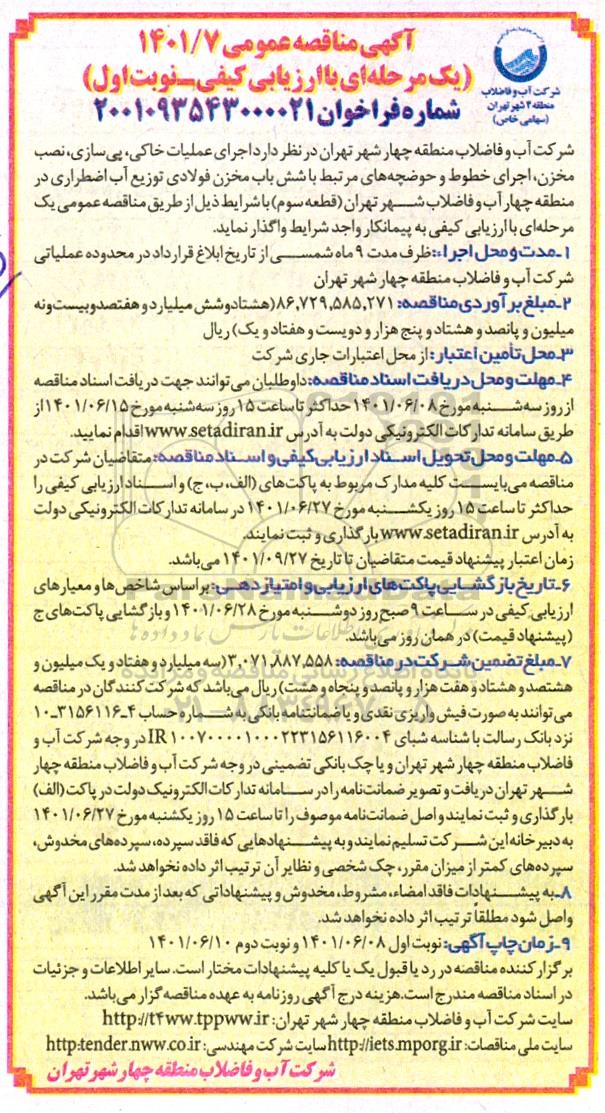 آگهی مناقصه عمومی ۱۴۰۱/۷
(یک مرحله‌ای با ارزیابی کیفی_نوبت اول)
شماره فراخوان ۲۰۰۱۰۹۳۵۴۳۰۰۰۰۲۱
شرکت آب و فاضلاب
منطقه ۴ شهر تهران
(سهامی خاص)
شرکت آب و فاضلاب منطقه چهار شهر تهران در نظر دارد اجرای عملیات خاکی، پی‌سازی، نصب
مخزن، اجرای خطوط و حوضچه‌های مرتبط با شش باب مخزن فولادی توزیع آب اضطراری در
منطقه چهار آب و فاضلاب شهر تهران (قطعه سوم) با شرایط ذیل از طریق مناقصه عمومی یک
مرحله‌ای با ارزیابی کیفی به پیمانکار واجد شرایط واگذار نماید.
۱_مدت و محل اجرا: ظرف مدت ۹ ماه شمسی از تاریخ ابلاغ قرارداد در محدوده عملیاتی
شرکت آب و فاضلاب منطقه چهار شهر تهران
۲_مبلغ برآوردی مناقصه: ۸۶,۷۲۹,۵۸۵,۲۷۱(هشتاد و شش میلیارد و هفتصد و بیست و نه
میلیون و پانصد و هشتاد و پنج هزار و دویست و هفتاد و یک) ریال
۳_محل تأمین اعتبار: از محل اعتبارات جاری شرکت
۴_مهلت و محل دریافت اسناد مناقصه: داوطلبان می‌توانند جهت دریافت اسناد مناقصه
از روز سه‌شنبه مورخ ۱۴۰۱/۰۶/۰۸ حداکثر تا ساعت ۱۵ روز سه‌شنبه مورخ ۱۴۰۱/۰۶/۱۵ از
طریق سامانه تدارکات الکترونیکی دولت به آدرس www.setadiran.ir اقدام نمایید.
۵_مهلت و محل تحویل اسناد ارزیابی کیفی و اسناد مناقصه: متقاضیان شرکت در
مناقصه می‌بایست کلیه مدارک مربوط به پاکت‌های (الف، ب، ج) و اسناد ارزیابی کیفی را
حداکثر تا ساعت ۱۵ روز یکشنبه مورخ ۱۴۰۱/۰۶/۲۷ در سامانه تدارکات الکترونیکی دولت
به آدرس www.setadiran.ir بارگذاری و ثبت نمایند.
زمان اعتبار پیشنهاد قیمت متقاضیان تا تاریخ ۱۴۰۱/۰۹/۲۷ می‌باشد.
۶_تاریخ بازگشایی پاکت‌های ارزیابی و امتیازدهی: براساس شاخص‌ها و معیارهای
ارزیابی کیفی در ساعت ۹ صبح روز دوشنبه مورخ ۱۴۰۱/۰۶/۲۸ و بازگشایی پاکت‌های ج
(پیشنهاد قیمت) در همان روز می‌باشد.
۷_مبلغ تضمین شرکت در مناقصه: ۳,۰۷۱,۸۸۷,۵۵۸(سه میلیارد و هفتاد و یک میلیون و
هشتصد و هشتاد و هفت هزار و پانصد و پنجاه و هشت) ریال می‌باشد که شرکت‌کنندگان در مناقصه
می‌توانند به صورت فیش واریزی نقدی و یا ضمانتنامه بانکی به شماره حساب ۴_۳۱۵۶۱۱۶_۱۰
نزد بانک رسالت با شناسه شبای IR ۱۰۰۷۰۰۰۰۱۰۰۰۲۲۳۱۵۶۱۱۶۰۰۴ در وجه شرکت آب و
فاضلاب منطقه چهار شهر تهران و یا چک بانکی تضمینی در وجه شرکت آب و فاضلاب منطقه چهار
شهر تهران دریافت و تصویر ضمانت‌نامه را در سامانه تدارکات الکترونیک دولت در پاکت (الف)
بارگذاری و ثبت نمایند و اصل ضمانت‌نامه موصوف را تا ساعت ۱۵ روز یکشنبه مورخ ۱۴۰۱/۰۶/۲۷
به دبیرخانه این شرکت تسلیم نمایند و به پیشنهادهایی که فاقد سپرده، سپرده‌های مخدوش،
سپرده‌های کمتر از میزان مقرر، چک شخصی و نظایر آن ترتیب اثر داده نخواهد شد.
۸_به پیشنهادات فاقد امضاء، مشروط، مخدوش و پیشنهاداتی که بعد از مدت مقرر این آگهی
واصل شود مطلقاً ترتیب اثر داده نخواهد شد.
۹_زمان چاپ آگهی: نوبت اول ۱۴۰۱/۰۶/۰۸ و نوبت دوم ۱۴۰۱/۰۶/۱۰
برگزارکننده مناقصه در رد یا قبول یک یا کلیه پیشنهادات مختار است. سایر اطلاعات و جزئیات
در اسناد مناقصه مندرج است. هزینه درج آگهی روزنامه به عهده مناقصه‌گزار می‌باشد.
سایت شرکت آب و فاضلاب منطقه چهار شهر تهران: http://t۴ww.tppww.ir
سایت ملی مناقصات: http://iets.mporg.ir سایت شرکت مهندسی: http:tender.nww.co.ir
شرکت آب و فاضلاب منطقه چهار شهر تهران